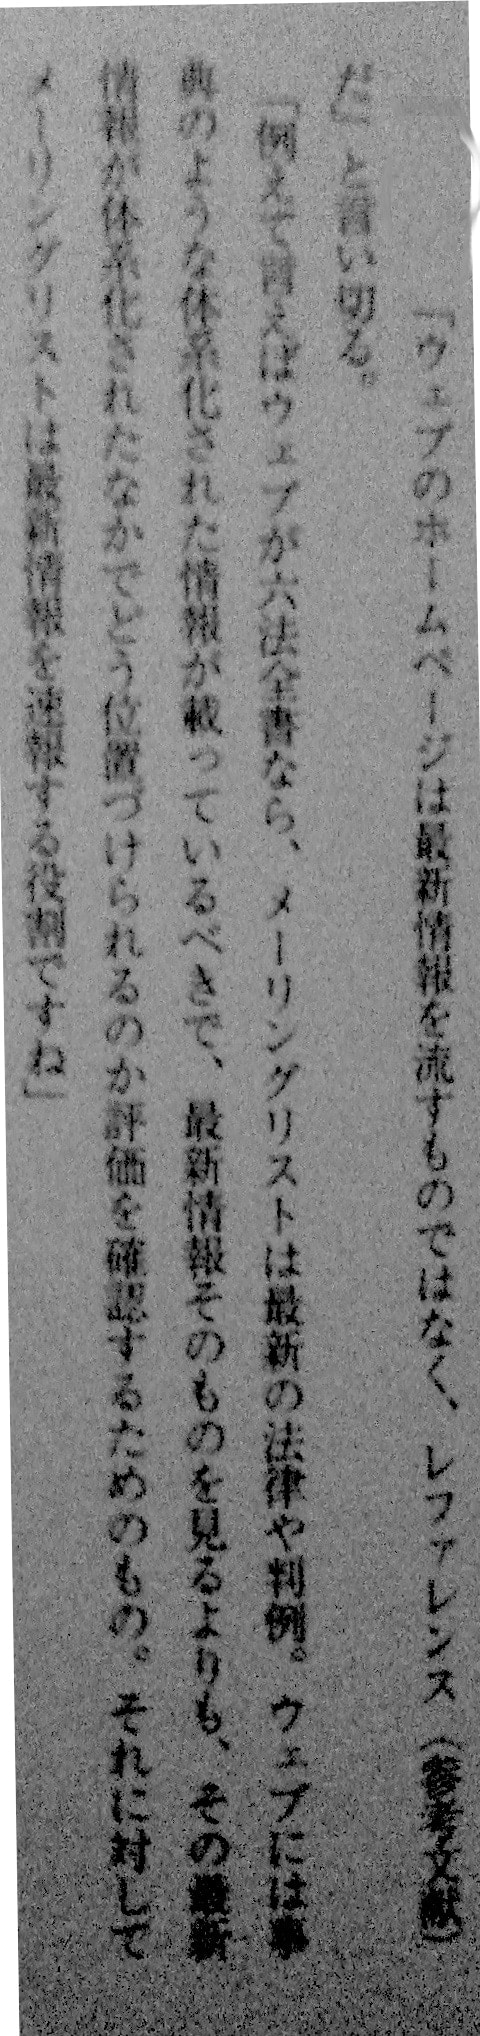 「ウェブのホームページは最新情報を流すものではなく、レファレンス（参考文献）
だ」と言い切る。
「例えて言えばウェブが六法全書なら、メーリングリストは最新の法律や判例。ウェブには事
典のような体系化された情報が載っているべきで、最新情報そのものを見るよりも、その最新
情報が体系化されたなかでどう位置づけられるのか評価を確認するためのもの。それに対して
メーリングリストは最新情報を速報する役割ですね」